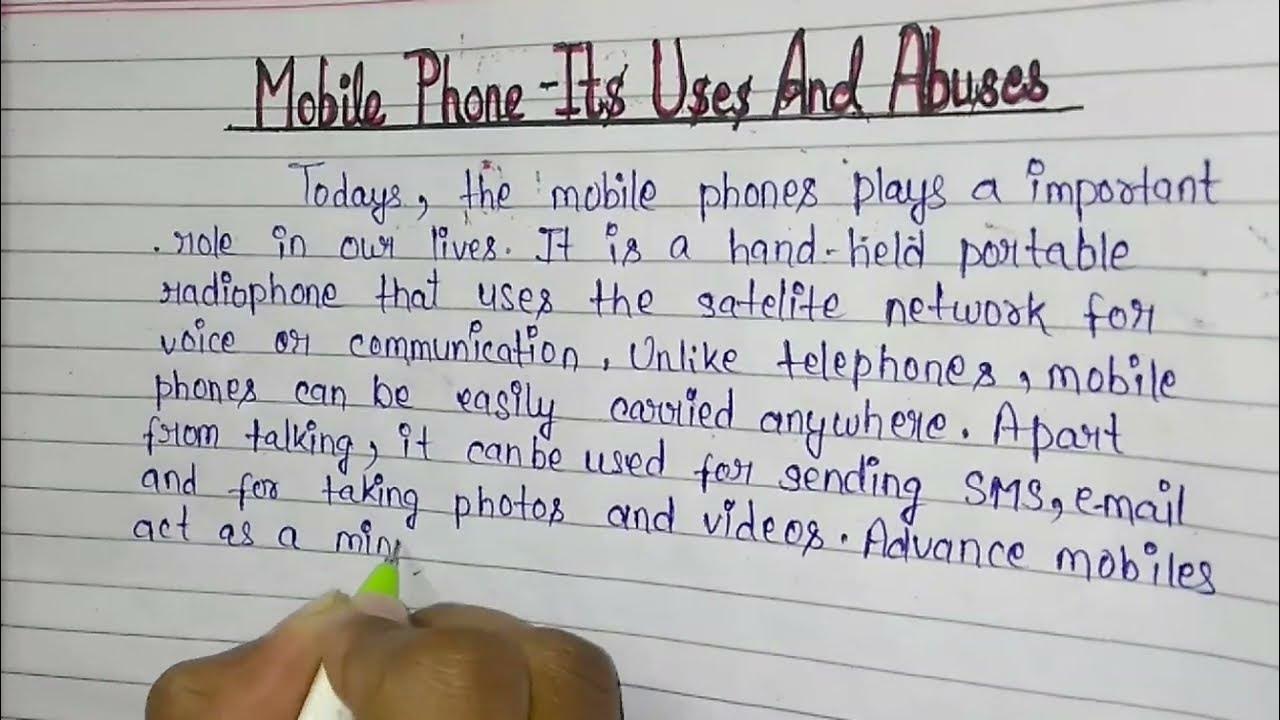 Mobile Phone-Its Uses And Abuses
Todays, the mobile phones plays a important
role in our lives. It is a hand-held portable
radiophone that uses the satelite network for
voice or communication, Unlike telephones, mobile
phones can be easily carried anywhere. Apart
from talking, it can be used for sending SMS, e-mail
and for taking photos and videos. Advance mobiles
act as a min